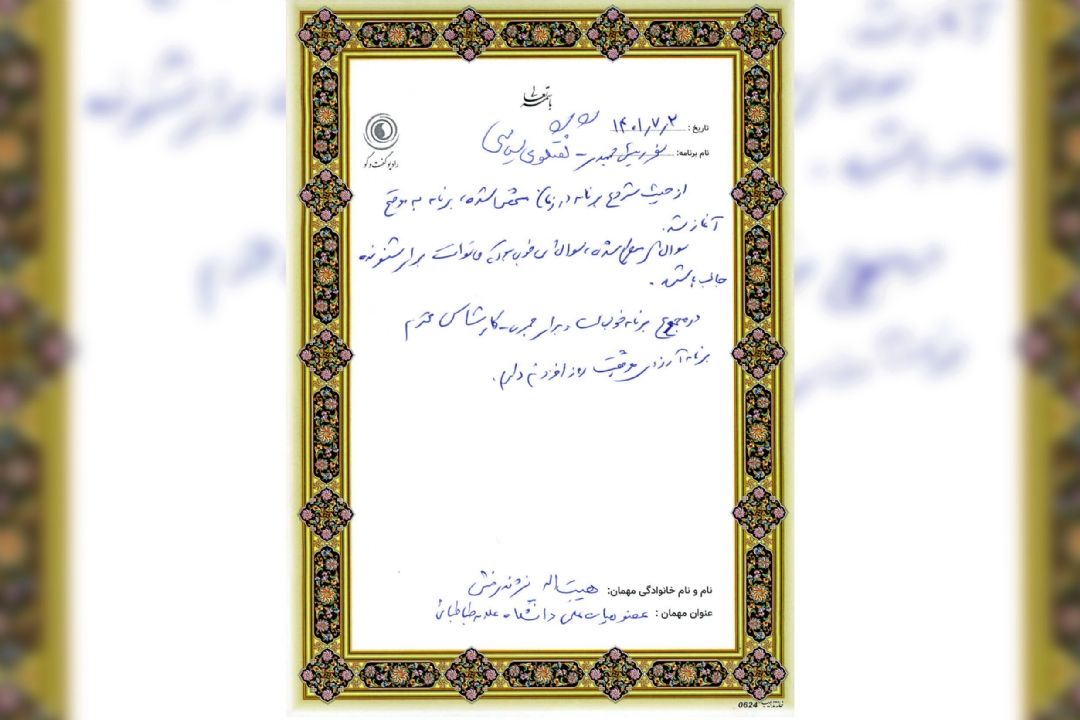 باسمه تعالی
رادیو گفت و گو
تاریخ : ۱۴۰۱/۷/۲
نام برنامه: گفتگوی سیاسی
از حیث شروع برنامه در زمان مشخص شده، برنامه به موقع
آغاز شد.
سوال‌های مطرح شده، سوال‌های خوب بود که می‌تواند برای شنونده
جالب باشد.
در مجموع برنامه خوب است و برای مجری - کارشناس محترم
برنامه آرزوی موفقیت روز افزون دارم.
نام و نام خانوادگی مهمان: هیبت‌اله نژندی‌منش
عنوان مهمان : عضو هیات علمی دانشگاه علامه طباطبائی
0624